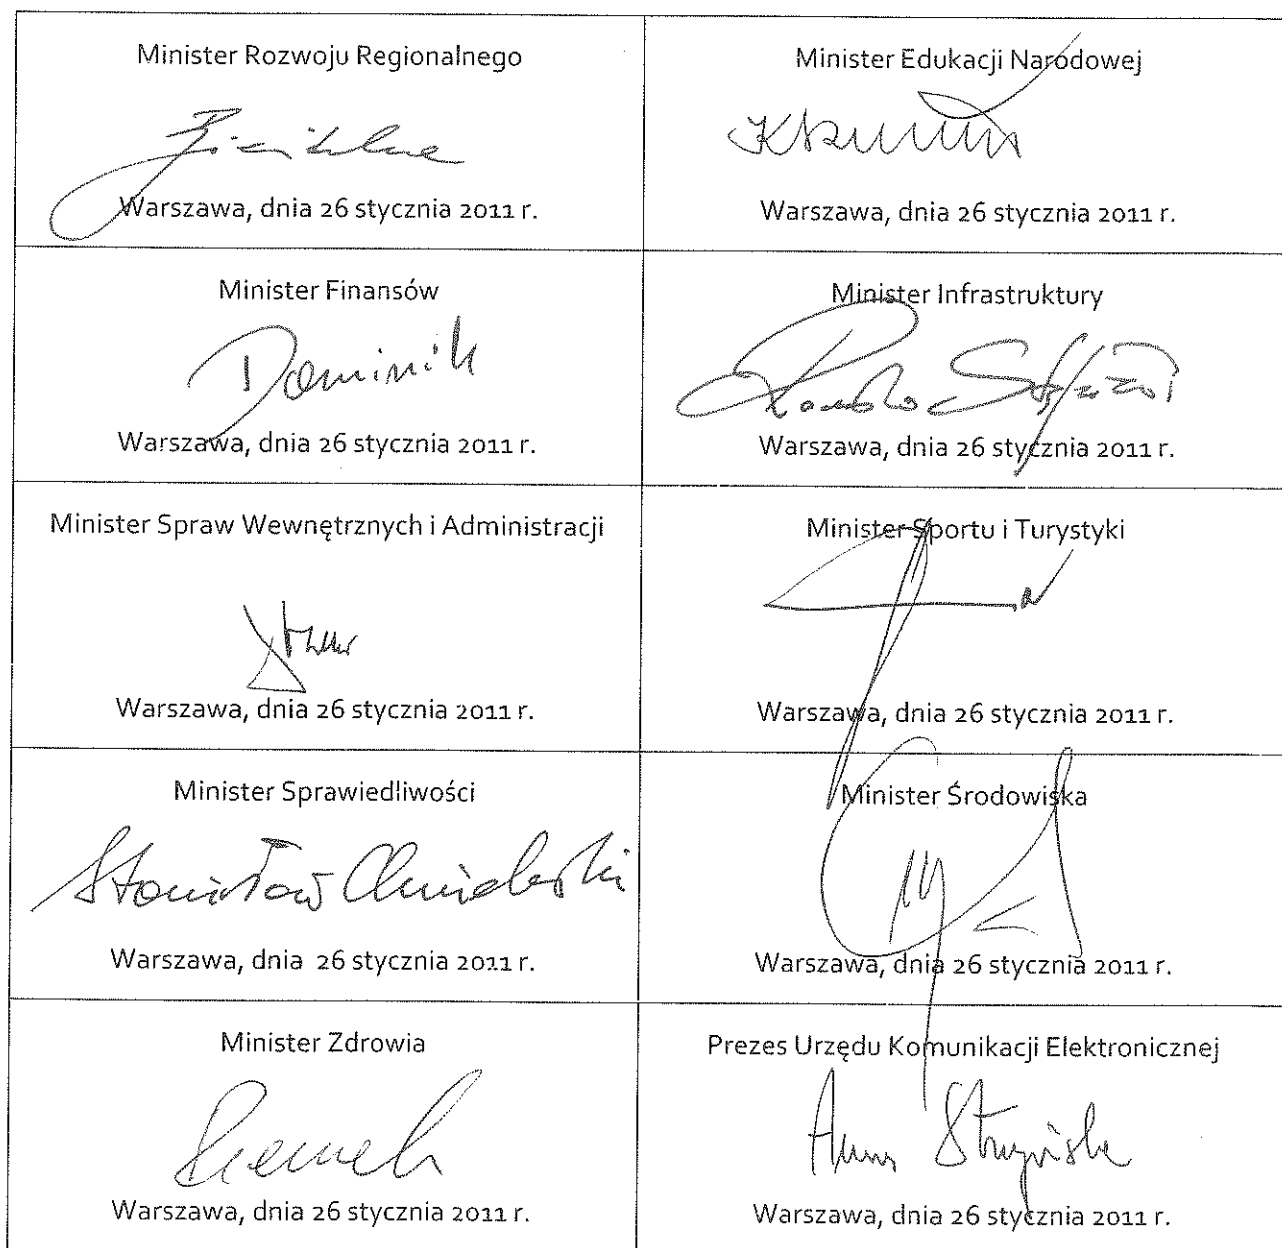 Minister Rozwoju Regionalnego
Warszawa, dnia 26 stycznia 2011 r.
Minister Edukacji Narodowej
Warszawa, dnia 26 stycznia 2011 r.
Minister Finansów
Dominik
Warszawa, dnia 26 stycznia 2011 r.
Minister Infrastruktury
Warszawa, dnia 26 stycznia 2011 r.
Minister Spraw Wewnętrznych i Administracji
Warszawa, dnia 26 stycznia 2011 r.
Minister Sportu i Turystyki
Warszawa, dnia 26 stycznia 2011 r.
Minister Sprawiedliwości
Stanisław Chmielewski
Warszawa, dnia 26 stycznia 2011 r.
Minister Środowiska
Warszawa, dnia 26 stycznia 2011 r.
Minister Zdrowia
Warszawa, dnia 26 stycznia 2011 r.
Prezes Urzędu Komunikacji Elektronicznej
Anna Streżyńska
Warszawa, dnia 26 stycznia 2011 r.